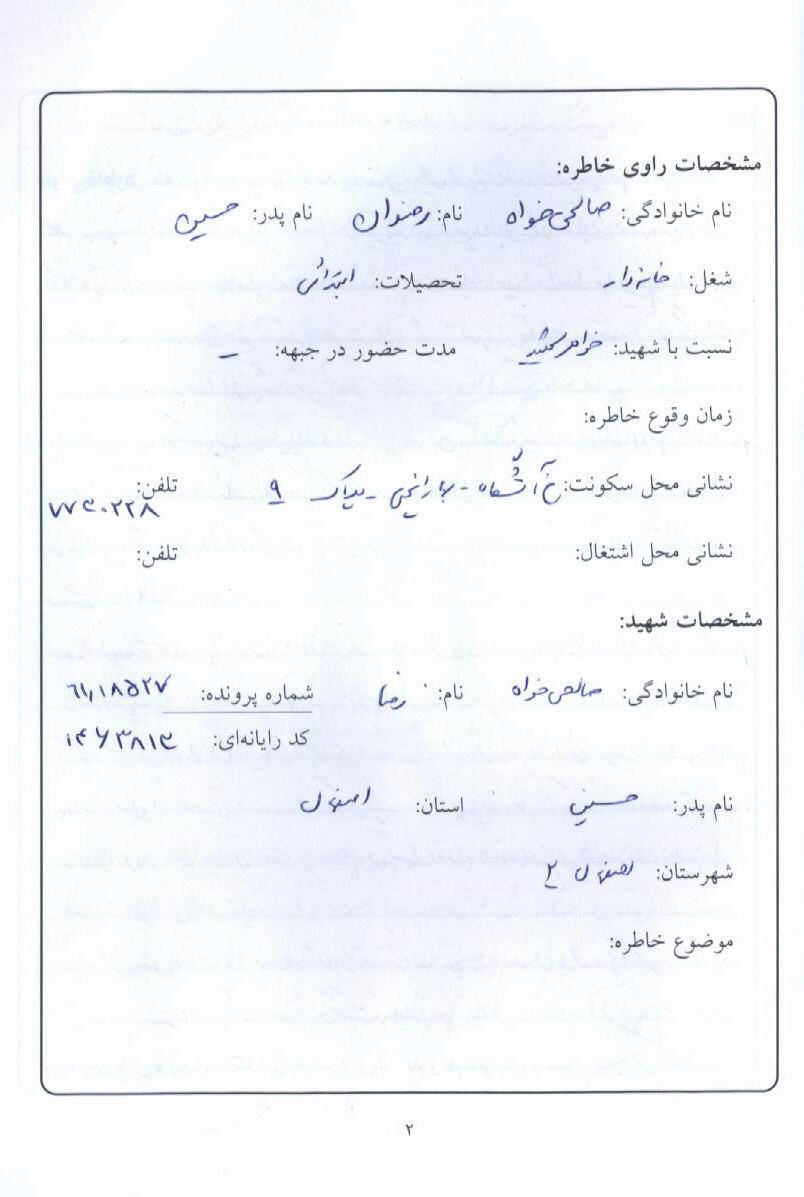 مشخصات راوی خاطره:
نام خانوادگی: صالحی خواه نام: رضوان نام پدر: حسین
شغل: خانه دار تحصیلات: ابتدائی
نسبت با شهید: خواهر شهید مدت حضور در جبهه: –
زمان وقوع خاطره:
نشانی محل سکونت: خ آتشگاه - بهارانچی - پلاک ۹ تلفن:
۷۷۳۰۲۲۸
نشانی محل اشتغال: تلفن:
مشخصات شهید:
نام خانوادگی: صالحی خواه نام: رضا شماره پرونده: ۶۱۱۸۵۲۷
کد رایانه‌ای: ۱۴۶۳۸۱۳
نام پدر: حسین استان: اصفهان
شهرستان: اصفهان ۲
موضوع خاطره:
۲